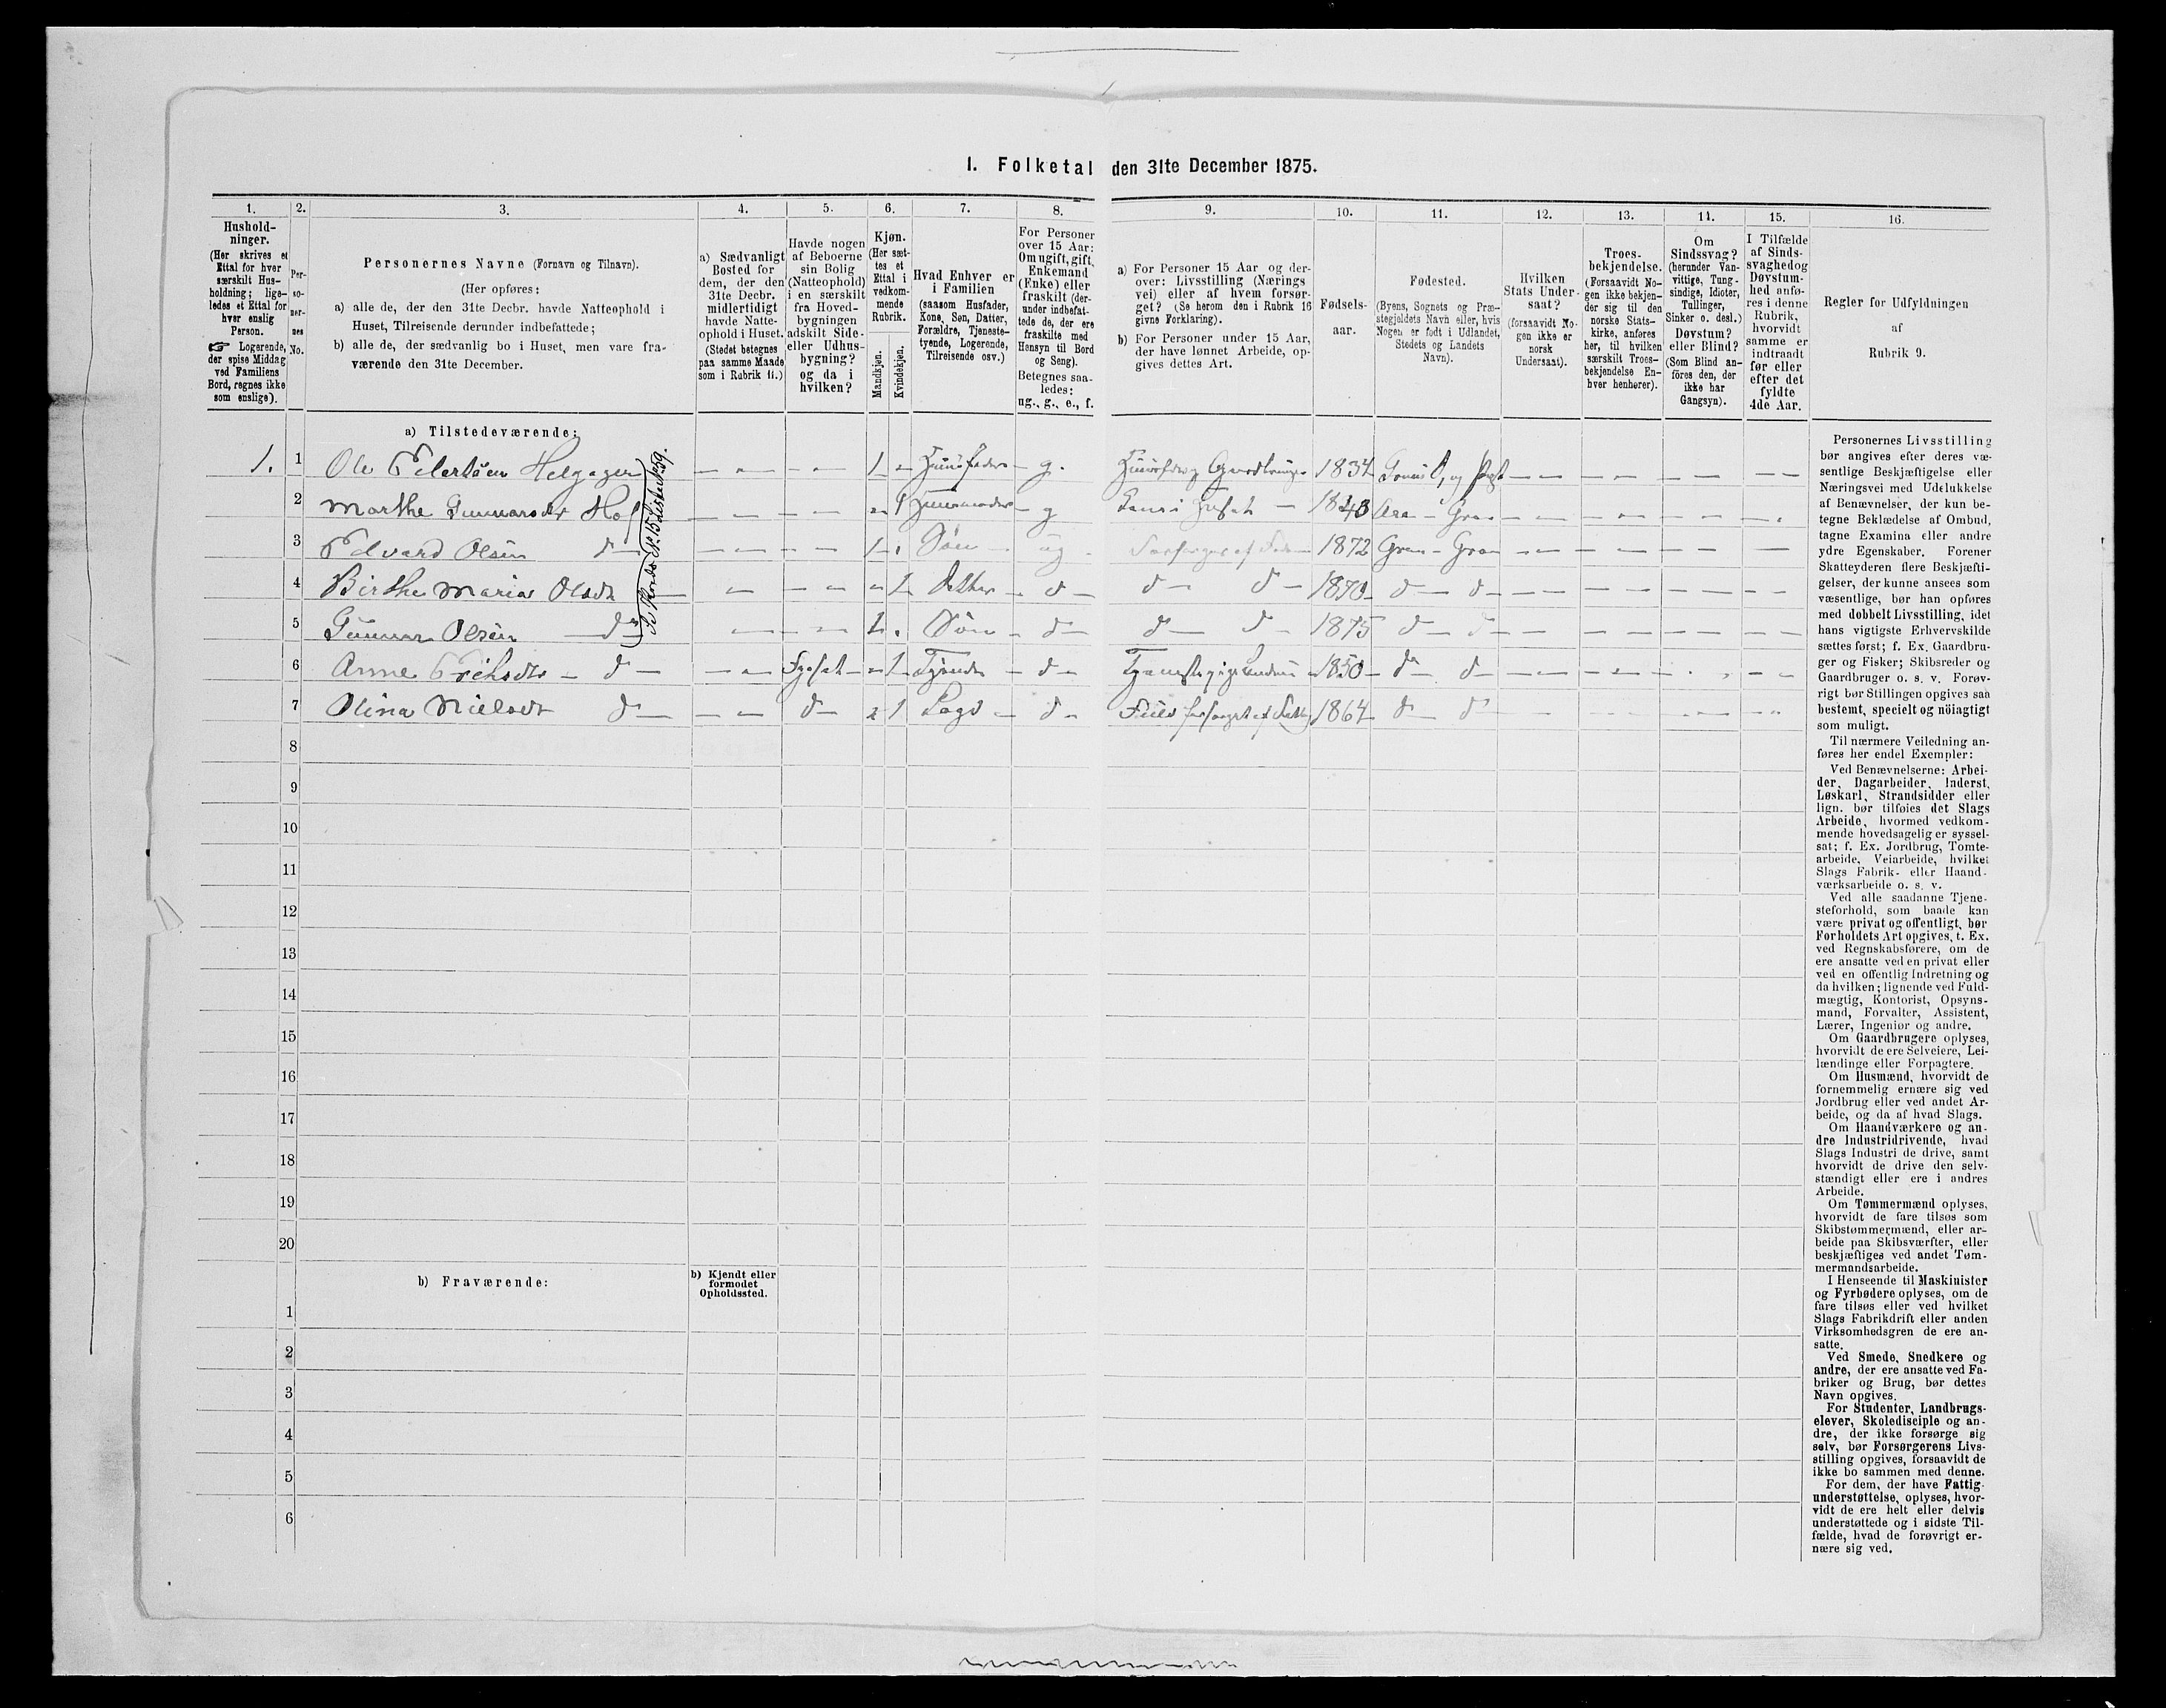 I. Folketal den 31te December 1875.
1. 2. 3. 4. 5. 6. 7. 8. 9. 10. 11. 12. 13. 14. 15. 16.
Hushold-
ninger.
(Her skrives et
Ettal for hver
særskilt Hus-
holdning; lige-
ledes et Ettal for
hver enslig
Person.
☞ Logerende,
der spise Middag
ved Familiens
Bord, regnes ikke
som enslige).
Per-
so-
ner-
nes
No.
Personernes Navne (Fornavn og Tilnavn).
(Her opføres:
a) alle de, der den 31te Decbr. havde Natteophold i
Huset, Tilreisende derunder indbefattede;
b) alle de, der sædvanlig bo i Huset, men vare fra-
værende den 31te December.
a) Sædvanligt
Bosted for
dem, der den
31te Decbr.
midlertidigt
havde Natte-
ophold i Huset.
(Stedet betegnes
paa samme Maade
som i Rubrik 11.)
Havde nogen
af Beboerne
sin Bolig
(Natteophold)
i en særskilt
fra Hoved-
bygningen
adskilt Side-
eller Udhus-
bygning?
og da i
hvilken?
Kjøn.
(Her sæt-
tes et
Ettal i
vedkom-
mende
Rubrik.
Mandkjøn.
Kvindekjøn.
Hvad Enhver er
i Familien
(saasom Husfader,
Kone, Søn, Datter,
Forældre, Tjeneste-
tyende, Logerende,
Tilreisende osv.)
For Personer
over 15 Aar:
Om ugift, gift,
Enkemand
(Enke) eller
fraskilt (der-
under indbefat-
tede de, der ere
fraskilte med
Hensyn til Bord
og Seng).
Betegnes saa-
ledes:
ug., g., e., f.
a) For Personer 15 Aar og der-
over: Livsstilling (Nærings
vei) eller af hvem forsør-
get? (Se herom den i Rubrik 16
givne Forklaring).
b) For Personer under 15 Aar,
der have lønnet Arbeide, op-
gives dettes Art.
Fødsels-
aar.
Fødested.
(Byens, Sognets og Præ-
stegjeldets Navn eller, hvis
Nogen er født i Udlandet,
Stedets og Landets
Navn).
Hvilken
Stats Under-
saat?
(forsaavidt No-
gen ikke er
norsk
Undersaat).
Troes-
bekjendelse.
(Forsaavidt No-
gen ikke bekjen-
der sig til den
norske Stats-
kirke, anføres
her, til hvilken
særskilt Troes-
bekjendelse En-
hver henhører).
Om
Sindssvag?
(herunder Van-
vittige, Tung-
sindige, Idioter,
Tullinger,
Sinker o. desl.)
Døvstum?
eller Blind?
(Som Blind an-
føres den, der
ikke har
Gangsyn).
I Tilfælde
af Sinds-
svaghed og
Døvstum-
hed anfø-
res i denne
Rubrik,
hvorvidt
samme er
indtraadt
før eller
efter det
fyldte
4de Aar.
Regler for Udfyldningen
af
Rubrik 9.
a) Tilstedeværende:
1. 1 Ole Helgagen 1 g. 1834
2 Marthe Gunnarsdtr Hof 1 g 1843
3 Edvard Olsen d 1 Søn ug 1872 Gran - Gran
4 Birthe Maria Olsdtr 1 Datter d d d 1870 d d
5 Gunnar Olsen d 1 Søn d d d 1875 d d
6 Anne d 1 d 1850 d d
7 Olina Nielsdtr d d 1 d 1864 d d
8
9
10
11
12
13
14
15
16
17
18
19
20
b) Fraværende:
b) Kjendt eller
formodet
Opholdssted.
1
2
3
4
5
6
Personernes Livsstilling
bør angives efter deres væ-
sentlige Beskjæftigelse eller
Næringsvei med Udelukkelse
af Benævnelser, der kun be-
tegne Beklædelse af Ombud,
tagne Examina eller andre
ydre Egenskaber. Forener
Skatteyderen flere Beskjæfti-
gelser, der kunne ansees som
væsentlige, bør han opføres
med dobbelt Livsstilling, idet
hans vigtigste Erhvervskilde
sættes først; f. Ex. Gaardbru-
ger og Fisker; Skibsreder og
Gaardbruger o. s. v. Forøv-
rigt bør Stillingen opgives saa
bestemt, specielt og nöiagtigt
som muligt.
Til nærmere Veiledning an-
føres her endel Exempler:
Ved Benævnelserne: Arbei-
der, Dagarbeider, Inderst,
Løskarl, Strandsidder eller
lign. bør tilføies det Slags
Arbeide, hvormed vedkom-
mende hovedsagelig er syssel-
sat; f. Ex. Jordbrug, Tomte-
arbeide, Veiarbeide, hvilket
Slags Fabrik- eller Haand-
værksarbeide o. s. v.
Ved alle saadanne Tjene-
steforhold, som baade kan
være privat og offentligt, bør
Forholdets Art opgives, t. Ex.
ved Regnskabsførere, om de
ere ansatte ved en privat eller
ved en offentlig Indretning og
da hvilken; lignende ved Fuld-
mægtig, Kontorist, Opsyns-
mand, Forvalter, Assistent,
Lærer, Ingeniør og andre.
Om Gaardbrugere oplyses,
hvorvidt de ere Selveiere, Lei-
lændinge eller Forpagtere.
Om Husmænd, hvorvidt de
fornemmelig ernære sig ved
Jordbrug eller ved andet Ar-
beide, og da af hvad Slags.
Om Haandværkere og an-
dre Industridrivende, hvad
Slags Industri de drive, samt
hvorvidt de drive den selv-
stændigt eller ere i andres
Arbeide.
Om Tømmermænd oplyses,
hvorvidt de fare tilsøs som
Skibstømmermænd, eller ar-
beide paa Skibsværfter, eller
beskjæftiges ved andet Tøm-
mermandsarbeide.
I Henseende til Maskinister
og Fyrbødere oplyses, om de
fare tilsøs eller ved hvilket
Slags Fabrikdrift eller anden
Virksomhedsgren de ere an-
satte.
Ved Smede, Snedkere og
andre, der ere ansatte ved Fa-
briker og Brug, bør dettes
Navn opgives.
For Studenter, Landbrugs-
elever, Skoledisciple og an-
dre, der ikke forsørge sig
selv, bør Forsørgerens Livs-
stilling opgives, forsaavidt de
ikke bo sammen med denne.
For dem, der have Fattig-
understøttelse, oplyses, hvor-
vidt de ere helt eller delvis
understøttede og i sidste Til-
fælde, hvad de forøvrigt er-
nære sig ved.